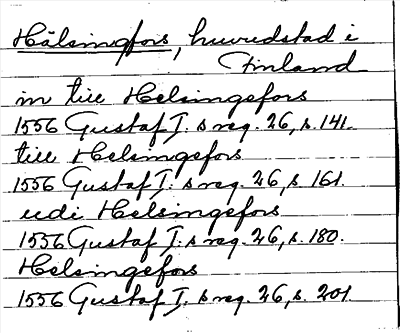 Hälsingfors, huvudstad i
Finland
in till Helsingefors
1556 Gustaf I:s reg. 26, s. 141.
till Helsingefors
1556 Gustaf I:s reg. 26, s. 161.
udi Helsingefors
1556 Gustaf I:s reg. 26, s. 180.
Helsingefors
1556 Gustaf I:s reg. 26, s. 201.